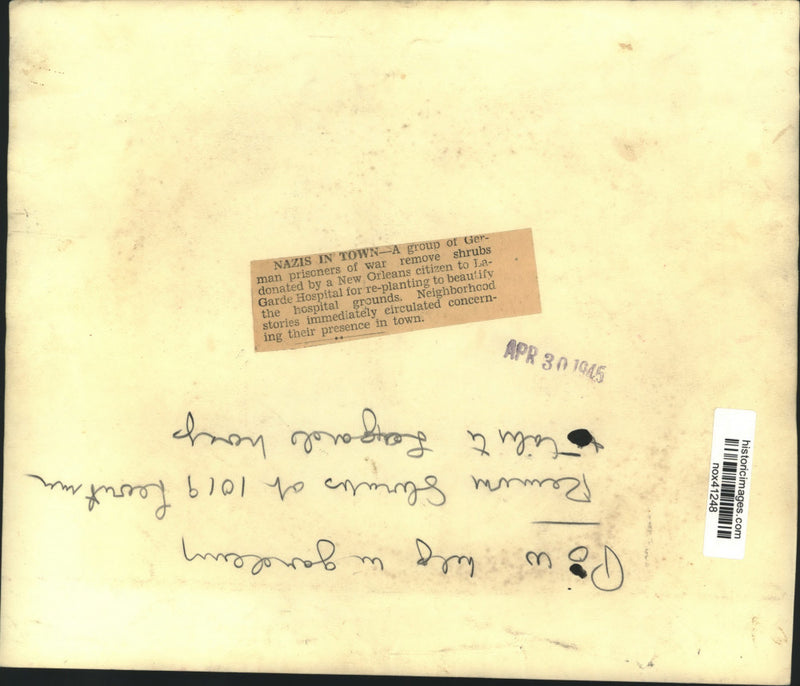 NAZIS IN TOWN—A group of Ger-
man prisoners of war remove shrubs
donated by a New Orleans citizen to La-
Garde Hospital for re-planting to beautify
the hospital grounds. Neighborhood
stories immediately circulated concern-
ing their presence in town.
APR 30 1945
historicimages.com
nox41248
POW help in gardening
Remove Shrubs at 1019
to Lagarde hosp